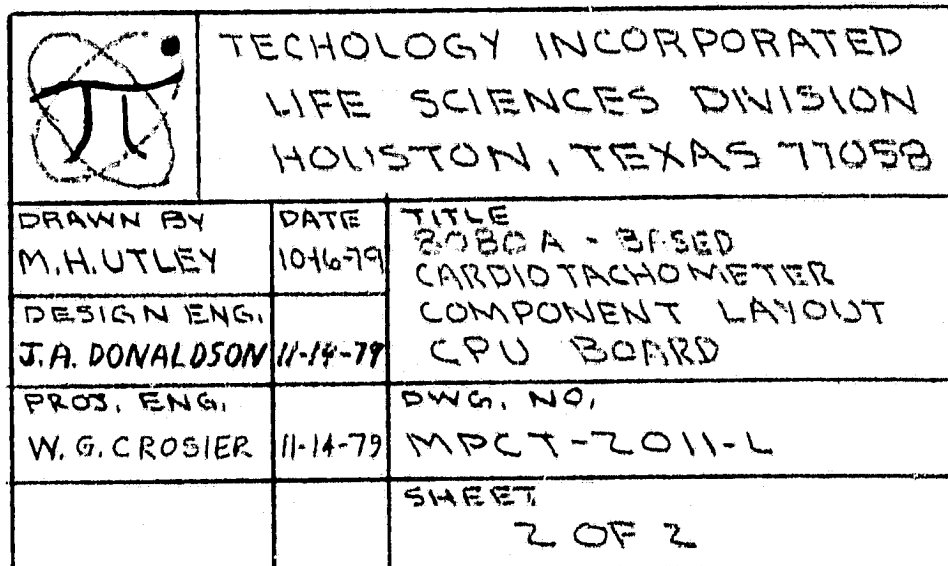 TECHOLOGY INCORPORATED
LIFE SCIENCES DIVISION
HOUSTON, TEXAS 77058
DRAWN BY
M.H. UTLEY
DATE
10-16-79
TITLE
8080A - BASED
CARDIOTACHOMETER
COMPONENT LAYOUT
CPU BOARD
DESIGN ENG.
J.A. DONALDSON
11-14-79
PROJ. ENG.
W. G. CROSIER
11-14-79
DWG. NO.
MPCT-2011-L
SHEET
2 OF 2